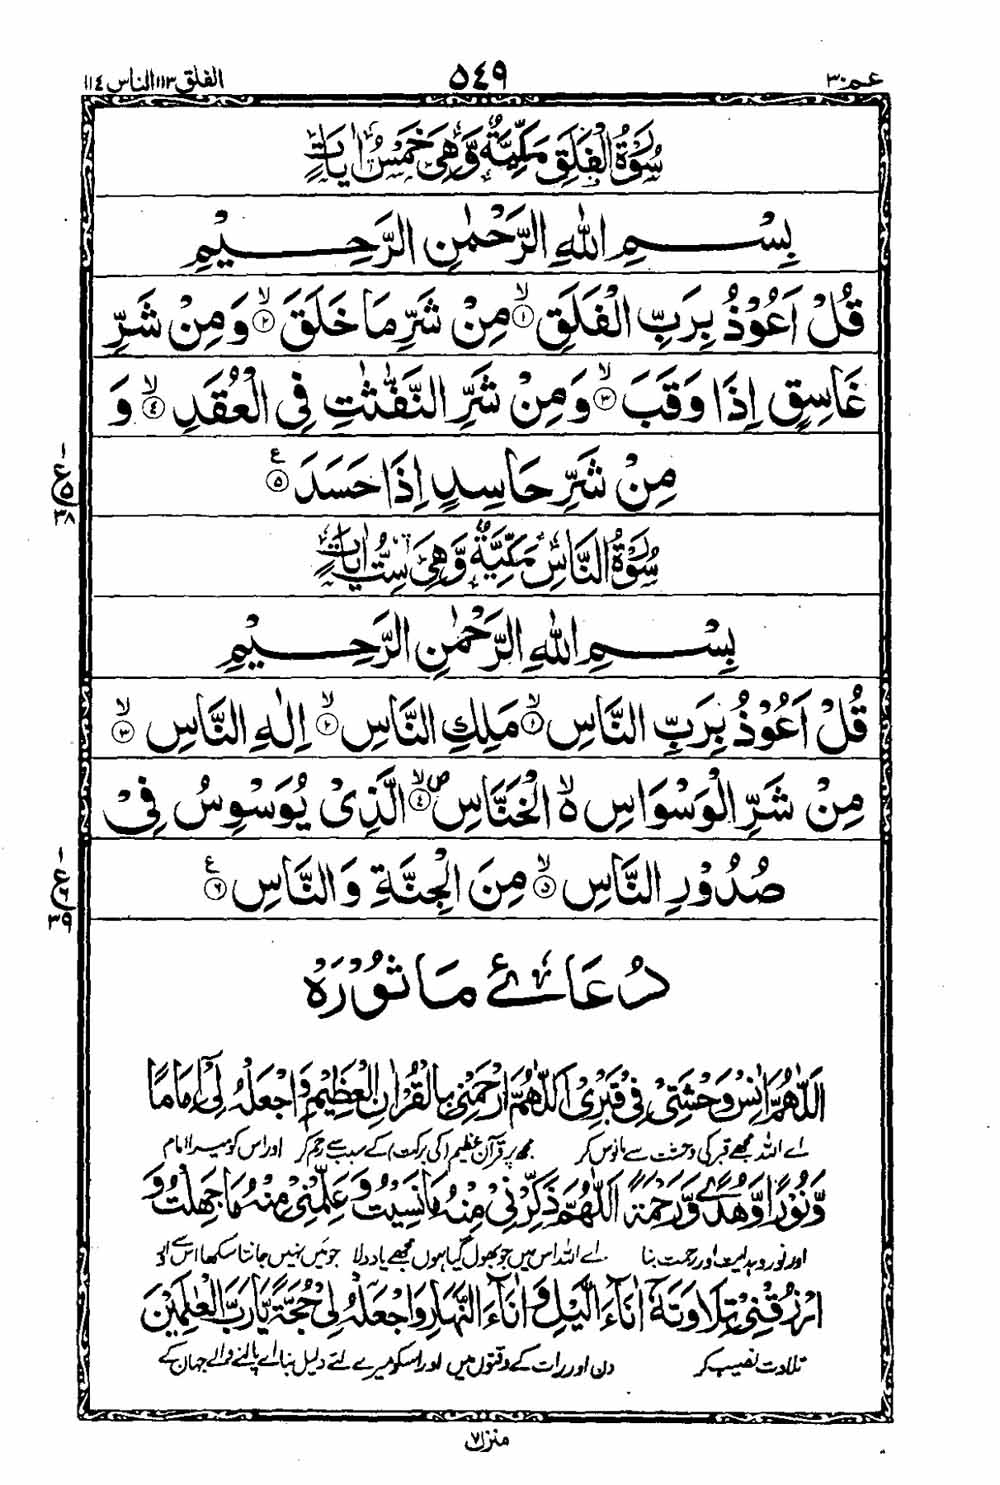 عم ٣٠
٥٤٩
الفلق ١١٣ الناس ١١٤
سُوْرَةُ الْفَلَقِ مَكِّيَّةٌ وَّهِيَ خَمْسُ اٰيَاتٍ
بِسْمِ اللّٰهِ الرَّحْمٰنِ الرَّحِيْمِ
قُلْ اَعُوْذُ بِرَبِّ الْفَلَقِ ۙ﴿١﴾ مِنْ شَرِّ مَا خَلَقَ ۙ﴿٢﴾ وَمِنْ شَرِّ
غَاسِقٍ اِذَا وَقَبَ ۙ﴿٣﴾ وَمِنْ شَرِّ النَّفّٰثٰتِ فِي الْعُقَدِ ۙ﴿٤﴾ وَ
مِنْ شَرِّ حَاسِدٍ اِذَا حَسَدَ ﴿٥﴾ ع
١ ع ٥ ٣٨
سُوْرَةُ النَّاسِ مَكِّيَّةٌ وَّهِيَ سِتُّ اٰيَاتٍ
بِسْمِ اللّٰهِ الرَّحْمٰنِ الرَّحِيْمِ
قُلْ اَعُوْذُ بِرَبِّ النَّاسِ ۙ﴿١﴾ مَلِكِ النَّاسِ ۙ﴿٢﴾ اِلٰهِ النَّاسِ ۙ﴿٣﴾
مِنْ شَرِّ الْوَسْوَاسِ ەۙ الْخَنَّاسِ ۙ﴿٤﴾ۖ الَّذِيْ يُوَسْوِسُ فِيْ
صُدُوْرِ النَّاسِ ۙ﴿٥﴾ مِنَ الْجِنَّةِ وَالنَّاسِ ﴿٦﴾ ع
١ ع ٦ ٣٩
دُعَائے مَاثُوْرَہْ
اَللّٰهُمَّ اٰنِسْ وَحْشَتِيْ فِيْ قَبْرِيْ اَللّٰهُمَّ ارْحَمْنِيْ بِالْقُرْاٰنِ الْعَظِيْمِ وَاجْعَلْهُ لِيْٓ اِمَامًا
اے اللہ مجھے قبر کی وحشت سے مانوس کر مجھ پر قرآن عظیم (کی برکت) کے سبب سے رحم کر اور اس کو میرا امام
وَّنُوْرًا وَّهُدًى وَّرَحْمَةً اَللّٰهُمَّ ذَكِّرْنِيْ مِنْهُ مَا نَسِيْتُ وَعَلِّمْنِيْ مِنْهُ مَا جَهِلْتُ وَ
اور نور و ہدایت اور رحمت بنا اے اللہ اس میں جو بھول گیا ہوں مجھے یاد دلا جو میں نہیں جانتا سکھا اس کی
ارْزُقْنِيْ تِلَاوَتَهٗٓ اٰنَآءَ الَّيْلِ وَاٰنَآءَ النَّهَارِ وَاجْعَلْهُ لِيْ حُجَّةً يَّا رَبَّ الْعٰلَمِيْنَ
تلاوت نصیب کر دن اور رات کے وقتوں میں اور اسکو میرے لئے دلیل بنا اے پالنے والے جہان کے
منزل ٧